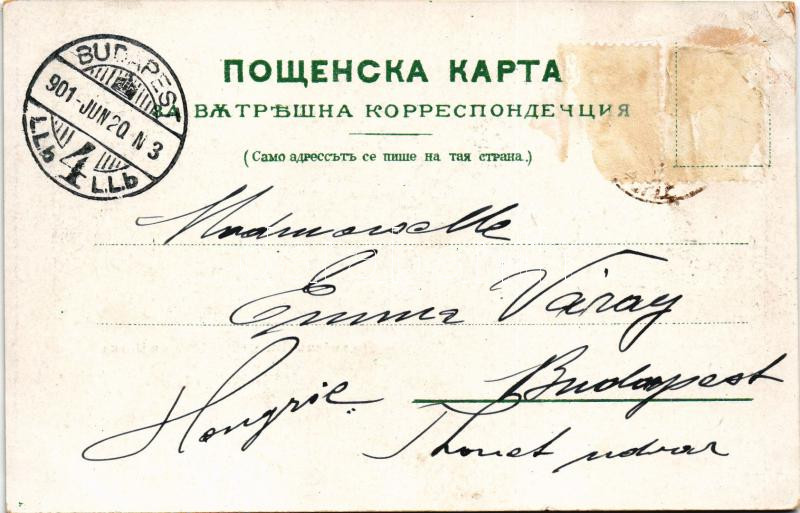 ПОЩЕНСКА КАРТА
ЗА ВѪТРѢШНА КОРРЕСПОНДЕЧЦИЯ
(Само адрессътъ се пише на тая страна.)
BUDAPEST
901-JUN 20. N 3
4
L.L.b L.L.b
Mademoiselle
Emma Váray
Hongrie Budapest
Thonet udvar